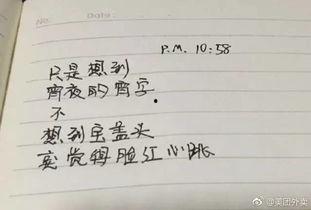 No. Date:
P.M. 10:58
只是想到
宵夜的宵字
不
想到宝盖头
觉得脸红心跳
@美团外卖